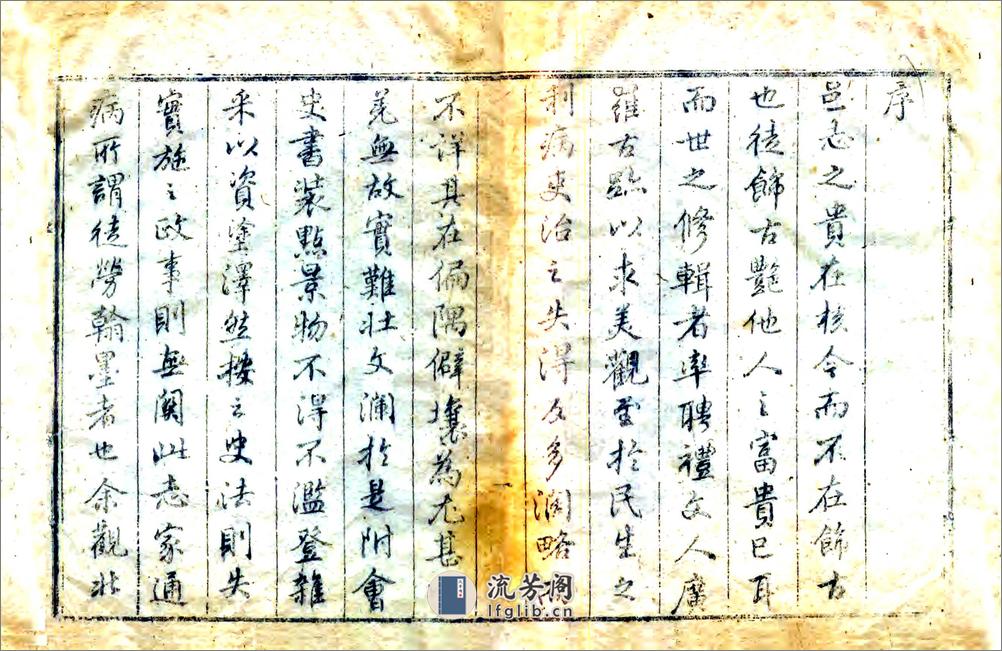 序
邑志之貴在核今而不在飾古
也徒飾古艷他人之富貴已耳
而世之修輯者率聘禮文人廣
羅古跡以求美觀至於民生之
利病吏治之失得反多濶略
不詳其在偏隅僻壤為尤甚
羌無故實難壯文瀾於是附會
史書装點景物不得不濫登雜
采以資塗澤然揆之史法則失
實施之政事則無関此志家通
病所謂徒勞翰墨者也余觀北
一
流芳阁
lfglib.cn